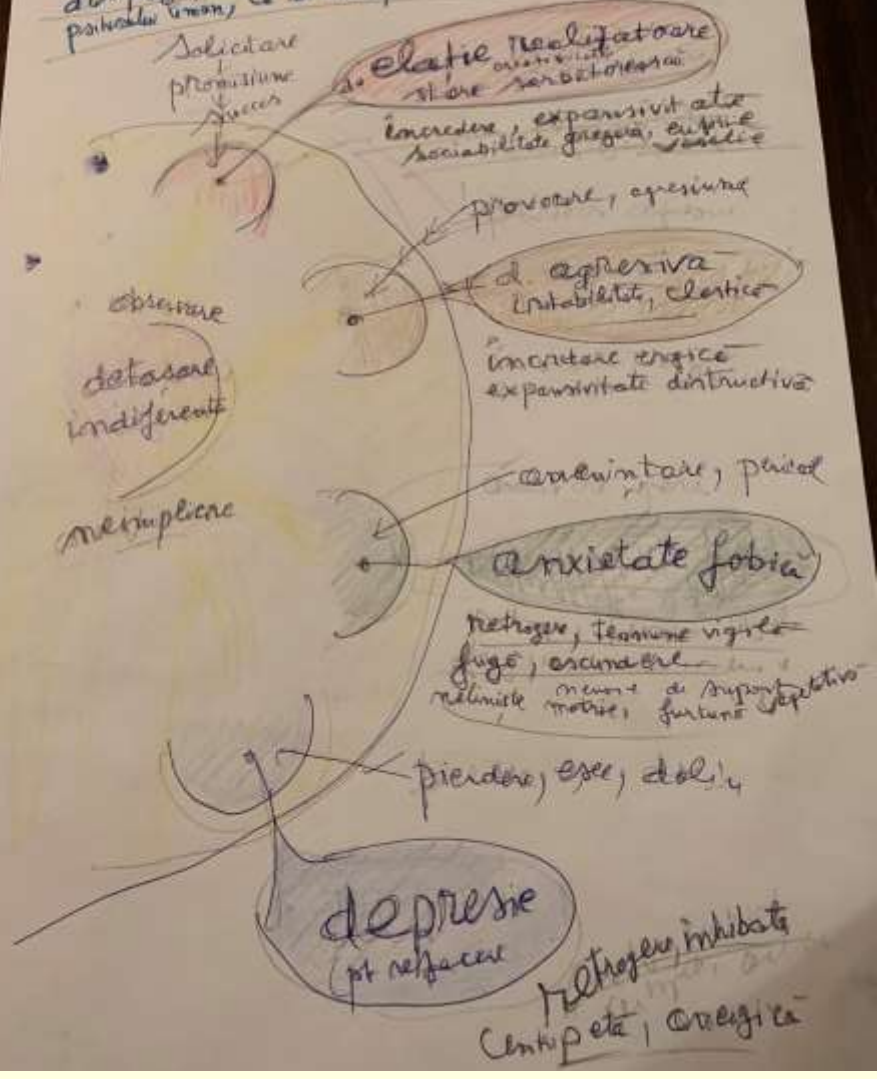 psihicului uman,
solicitare
promisiune
succes
de elație realizatoare
stare sărbătorească
încredere, expansivitate
sociabilitate gregară,
provocare, agresiune
d agresivă
iritabilitate,
expansivitate distructivă
observare
detașare
indiferență
neimplicare
amenințare, pericol
anxietate fobică
retragere, tensiune vigilă
fugă, ascundere
neliniște motrice, furtună vegetativă
pierdere, eșec, doliu
depresie
(pt refacere
retragere, inhibată
centripetă, anergică